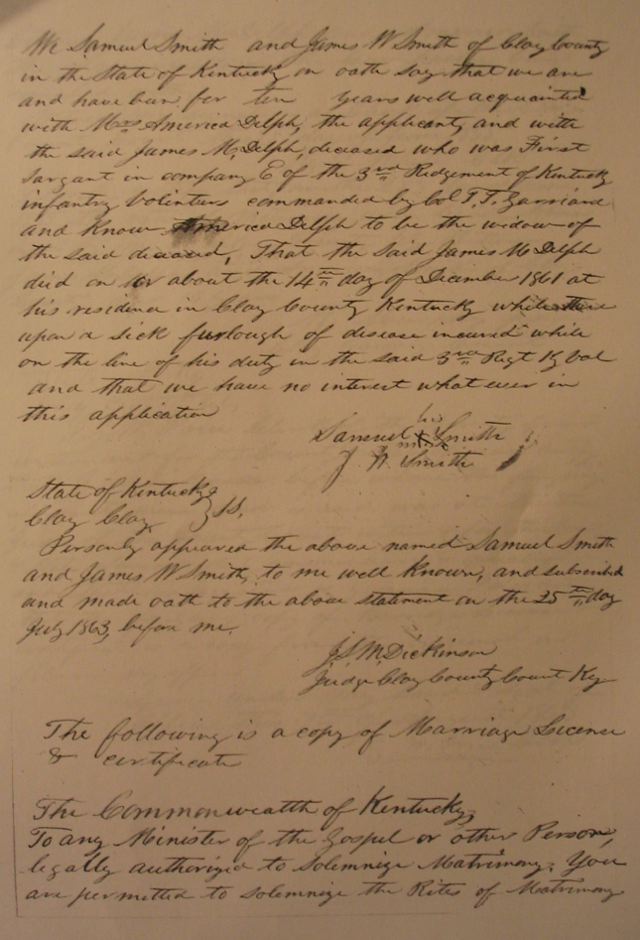 We Samuel Smith and James W Smith of Clay County
in the State of Kentucky on oath say that we are
and have been for ten years well acquainted
with Mrs America Delph, the applicant, and with
the said James M. Delph, deceased who was First
Sargant in company E of the 3rd Redgement of Kentucky
infantry Volinters commanded by Col T. T. Garrard
and know America Delph to be the widow of
the said diceased, That the said James M Delph
died on or about the 14th day of December 1861 at
his residence in Clay County Kentucky while
upon a sick furlough of disease incured while
on the line of his duty in the said 3rd Regt Ky Vol
and that we have no interest what ever in
this application
his
Samuel X Smith
mark
J. W. Smith
State of Kentucky
Clay Clay } SS.
Personly appeared the above named Samuel Smith
and James W Smith, to me well Known, and subscribed
and made oath to the above statement on the 25th day
July 1863, before me.
J S M Dickinson
Judge Clay County Court Ky
The following is a copy of Marriage License
& certificate
The Commonwealth of Kentucky,
To any Minister of the Gospel or other Person,
legally authorized to Solemnize Matrimony. You
are permitted to solemnize the Rites of Matrimony